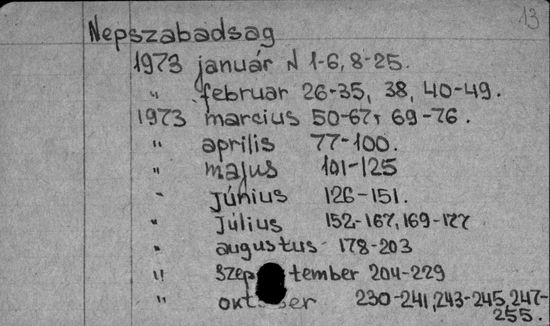 13
Nepszabadsag
1973 január N 1-6, 8-25.
" februar 26-35, 38, 40-49.
1973 marcius 50-67, 69-76.
" aprilis 77-100.
" majus 101-125
" június 126-151.
" Július 152-167, 169-177
" augustus 178-203
" szeptember 204-229
" október 230-241, 243-245, 247-
255.